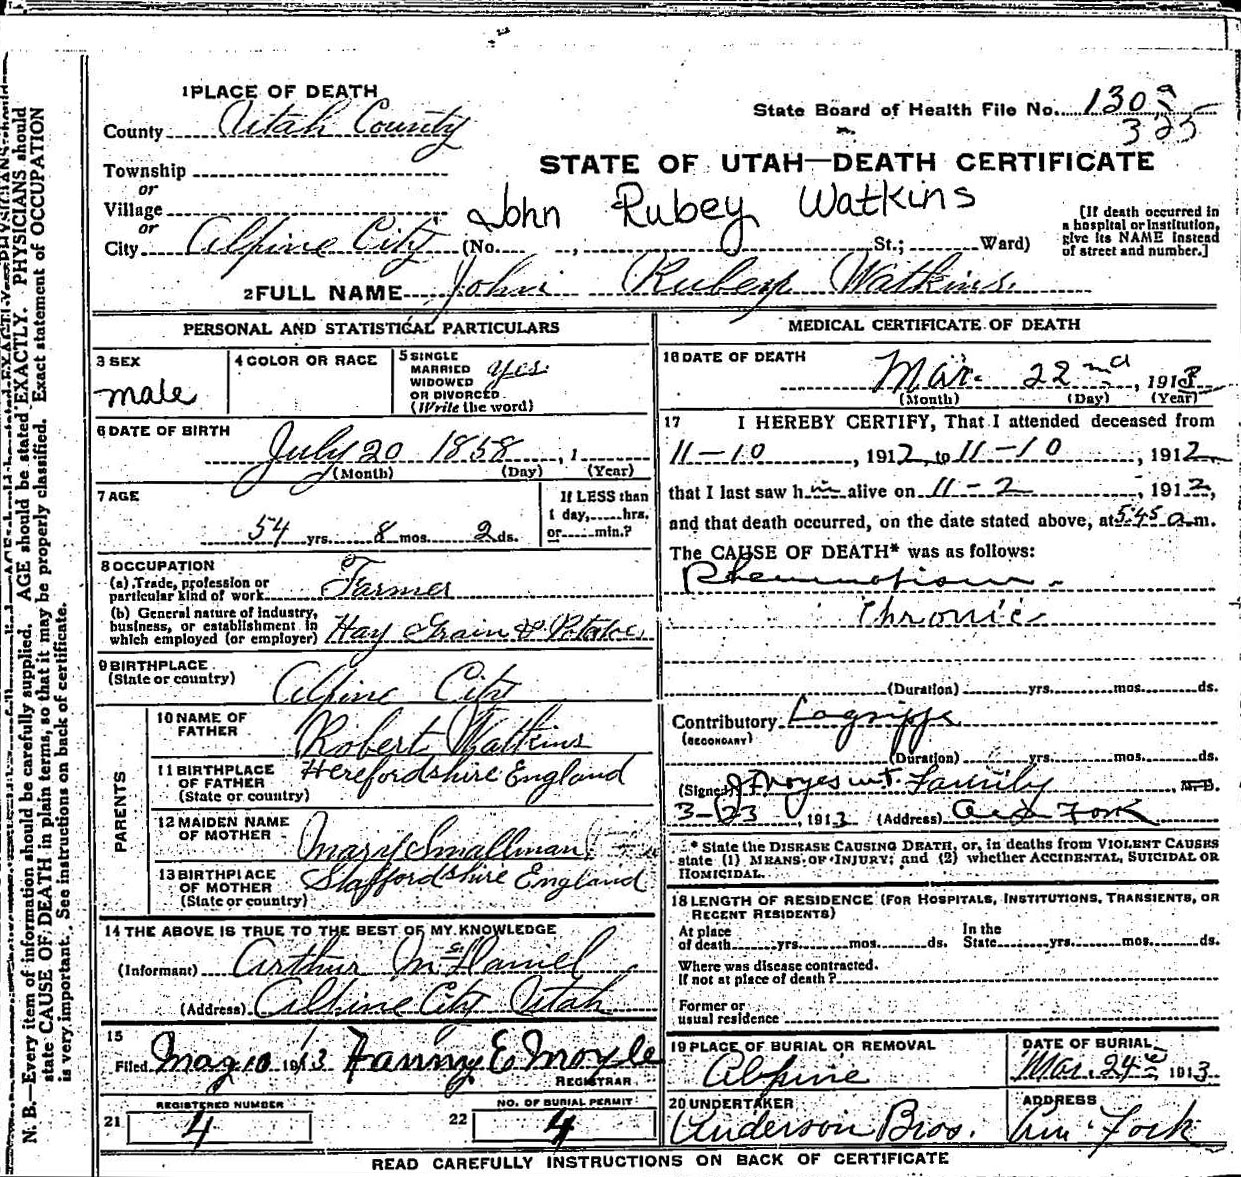 1 PLACE OF DEATH
County Utah County
State Board of Health File No. 130
325
STATE OF UTAH—DEATH CERTIFICATE
Township
or
Village
or
City Alpine City (No. , St.; Ward)
John Rubey Watkins
[If death occurred in
a hospital or institution,
give its NAME instead
of street and number.]
2 FULL NAME John Rubey Watkins.
PERSONAL AND STATISTICAL PARTICULARS
3 SEX
male
4 COLOR OR RACE
5 SINGLE
MARRIED
WIDOWED
OR DIVORCED
(Write the word)
yes.
6 DATE OF BIRTH
July 20 1858, 1
(Month) (Day) (Year)
7 AGE
54 yrs. 8 mos. 2 ds.
If LESS than
1 day, hrs.
or min.?
8 OCCUPATION
(a) Trade, profession or
particular kind of work Farmer
(b) General nature of industry,
business, or establishment in
which employed (or employer) Hay Grain & Potatoe
9 BIRTHPLACE
(State or country)
Alpine City
PARENTS
10 NAME OF
FATHER
Robert Watkins
11 BIRTHPLACE
OF FATHER
(State or country)
Herefordshire England
12 MAIDEN NAME
OF MOTHER
Mary Smallman
13 BIRTHPLACE
OF MOTHER
(State or country)
Staffordshire England
14 THE ABOVE IS TRUE TO THE BEST OF MY KNOWLEDGE
(Informant) Arthur McDaniel
(Address) Alpine City Utah
15
Filed May 10 1913 Fanny E Moyle
REGISTRAR
21 REGISTERED NUMBER
4
22 NO. OF BURIAL PERMIT
4
MEDICAL CERTIFICATE OF DEATH
16 DATE OF DEATH
Mar. 22nd, 1913
(Month) (Day) (Year)
17 I HEREBY CERTIFY, That I attended deceased from
11-10, 1912, to 11-10, 1912,
that I last saw him alive on 11-2, 1912,
and that death occurred, on the date stated above, at 545 a.m.
The CAUSE OF DEATH* was as follows:
Rheumatism
Chronic
(Duration) yrs. mos. ds.
Contributory Lagrippe
(SECONDARY)
(Duration) yrs. mos. ds.
(Signed) Family, M.D.
3-23, 1913 (Address) Fork
* State the DISEASE CAUSING DEATH, or, in deaths from VIOLENT CAUSES
state (1) MEANS OF INJURY; and (2) whether ACCIDENTAL, SUICIDAL OR
HOMICIDAL.
18 LENGTH OF RESIDENCE (FOR HOSPITALS, INSTITUTIONS, TRANSIENTS, OR
RECENT RESIDENTS)
At place
of death yrs. mos. ds.
In the
State yrs. mos. ds.
Where was disease contracted.
If not at place of death?
Former or
usual residence
19 PLACE OF BURIAL OR REMOVAL
Alpine
DATE OF BURIAL
Mar. 24th 1913
20 UNDERTAKER
Anderson Bros.
ADDRESS
Am. Fork
READ CAREFULLY INSTRUCTIONS ON BACK OF CERTIFICATE
N. B.—Every item of information should be carefully supplied. AGE should be stated EXACTLY. PHYSICIANS should
state CAUSE OF DEATH in plain terms, so that it may be properly classified. Exact statement of OCCUPATION
is very important. See instructions on back of certificate.